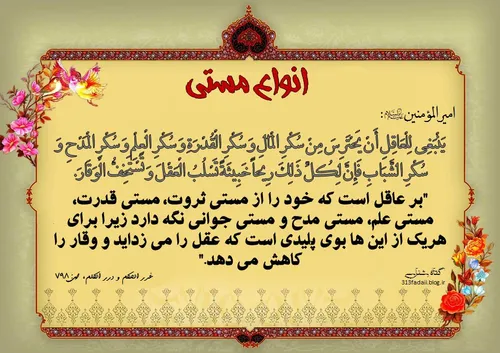 انواع مستی
امیرالمؤمنین علیه‌السلام:
یَنْبَغی لِلعاقِلِ أَن یَحتَرِسَ مِن سُکرِ المالِ وَ سُکرِ القُدرَةِ وَ سُکرِ العِلمِ وَ سُکرِ المَدحِ وَ
سُکرِ الشَّبابِ فَإِنَّ لِکُلِّ ذلِکَ ریحاً خَبیثَةً تَسلُبُ العَقلَ وَ تَستَخِفُّ الوَقارَ.
"بر عاقل است که خود را از مستی ثروت، مستی قدرت،
مستی علم، مستی مدح و مستی جوانی نگه دارد زیرا برای
هریک از این ها بوی پلیدی است که عقل را می زداید و وقار را
کاهش می دهد."
غرر الحکم و درر الکلم، ص ۷۹۸
313fadaii.blog.ir